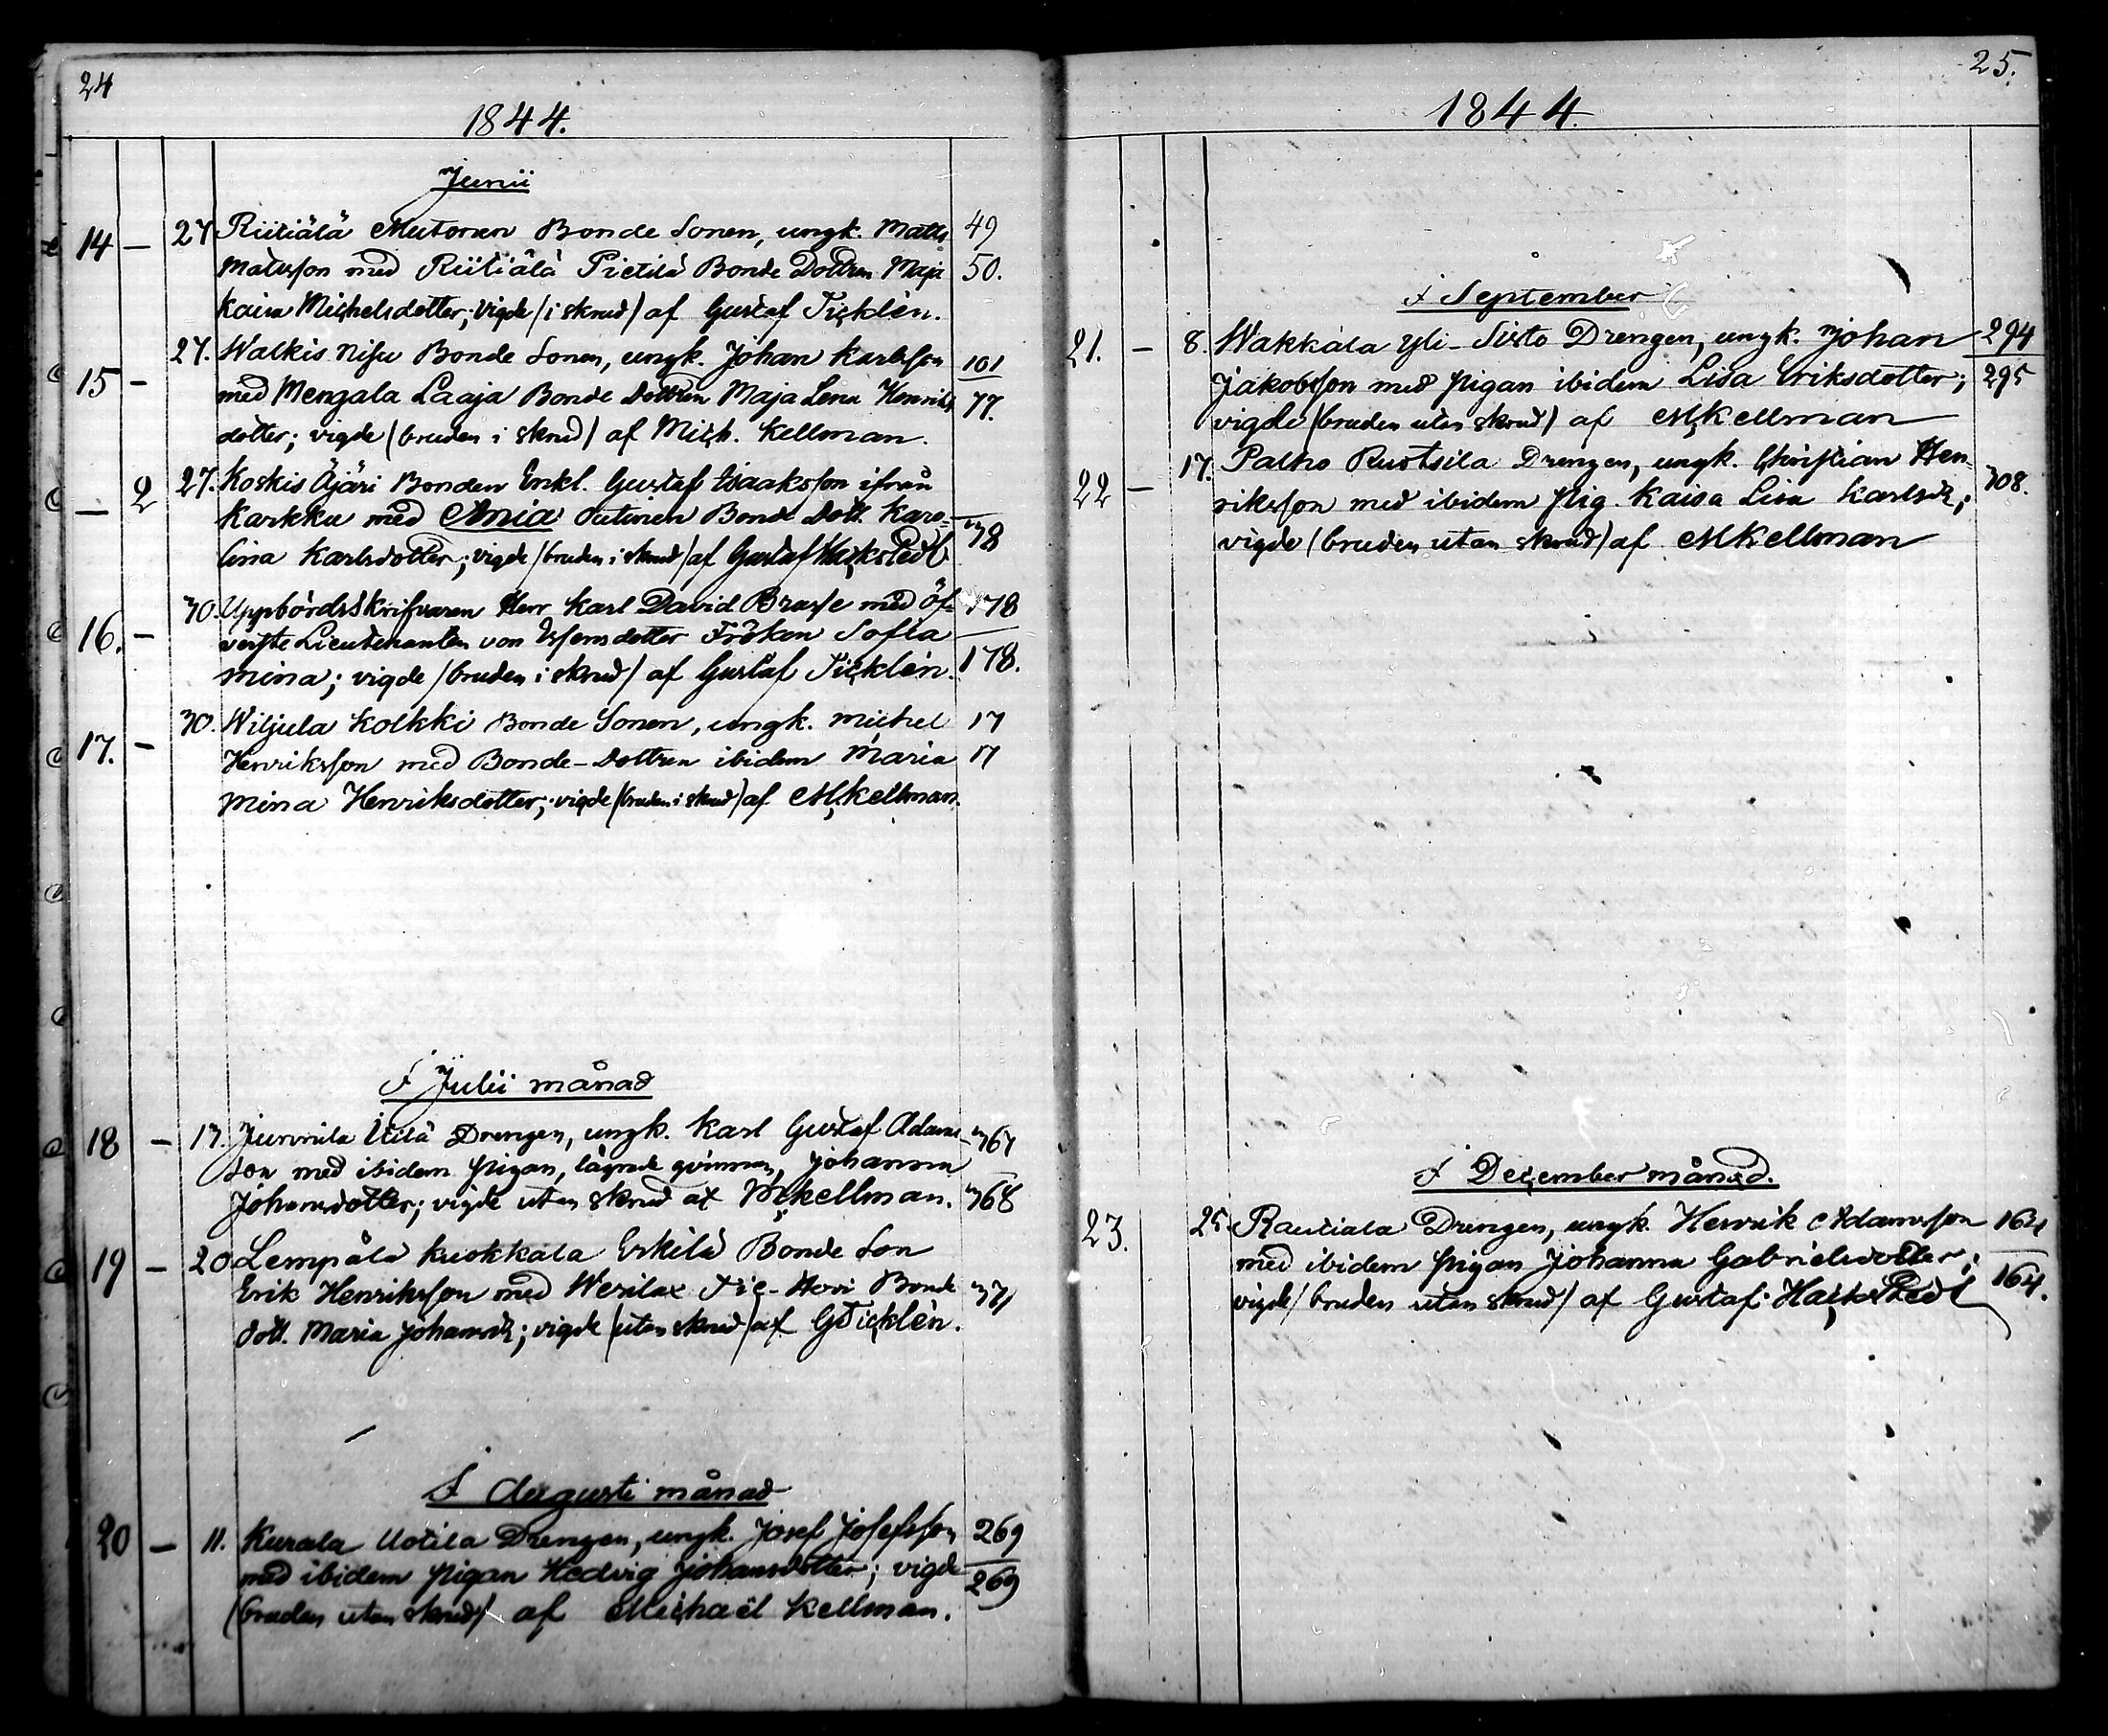 24
1844.
Junii
14 — 27 Riitiälä Mutonen Bonde Sonen, ungk. Matts 49
Matsson med Riitiälä Pietilä Bonde Dottren Maja 50.
Kaisa Michelsdotter; vigde (i skrud) af Gustaf Ticklén.
15 — 27. Walkis Nisu Bonde Sonen, ungk. Johan Karlsson 101
med Mengala Laaja Bonde Dottren Maja Lena Henriks 77.
dotter; vigde (bruden i skrud) af Mich. Kellman.
— 2 27. Koskis Äjäri Bonden Enkl. Gustaf Isaaksson ifrån
Karkku med Ania Outinen Bond Dott. Karo-
lina Karlsdotter; vigde (bruden i skrud) af Gustaf 38
16. — 30. Uppbördsskrifvaren Herr Karl David Brasse med Öf- 178
verste Lieutenanten von Essensdotter Fröken Sofia
Mina; vigde (bruden i skrud) af Gustaf Ticklén. 178.
17. — 30. Wiljula Kolkki Bonde Sonen, ungk. Michel 17
Henriksson med Bonde-Dottren ibidem Maria 17
Mina Henriksdotter; vigde (bruden i skrud) af MKellman.
I Julii månad
18 — 13. Junnila Uotila Drengen, ungk. Karl Gustaf Adams- 367
son med ibidem pigan, lägrade qvinnan, Johanna
Johansdotter; vigde utan skrud af MKellman. 368
19 — 20 Lempäla Kuokkala Erkilä Bonde Son
Erik Henriksson med Werilax Bonde 371
dott. Maria Johansdr; vigde (utan skrud) af GTicklén.
I Augusti månad
20 — 11. Kurala Uotila Drengen, ungk. Josef Josefsson 269
med ibidem pigan Hedvig Johansdotter; vigde 269
(bruden utan skrud) af Michaël Kellman.
25.
1844
I September
21. — 8. Wakkala Yli-Sisto Drengen, ungk. Johan 294
Jakobsson med pigan ibidem Lisa Eriksdotter; 295
vigde (bruden utan skrud) af MKellman
22 — 17. Palho Ruotsila Drengen, ungk. Christian Hen-
riksson med ibidem pig. Kaisa Lisa Karlsdr; 308.
vigde (bruden utan skrud) af MKellman
I December månad.
23. 25 Rautiala Drengen, ungk. Henrik Adamsson 164
med ibidem pigan Johanna Gabrielsdotter;
vigde (bruden utan skrud) af Gustaf 164.